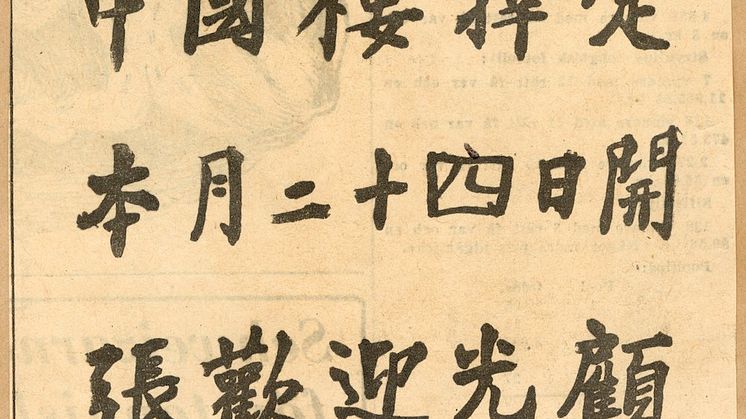 中國樓擇定
本月二十四日開
張歡迎光顧